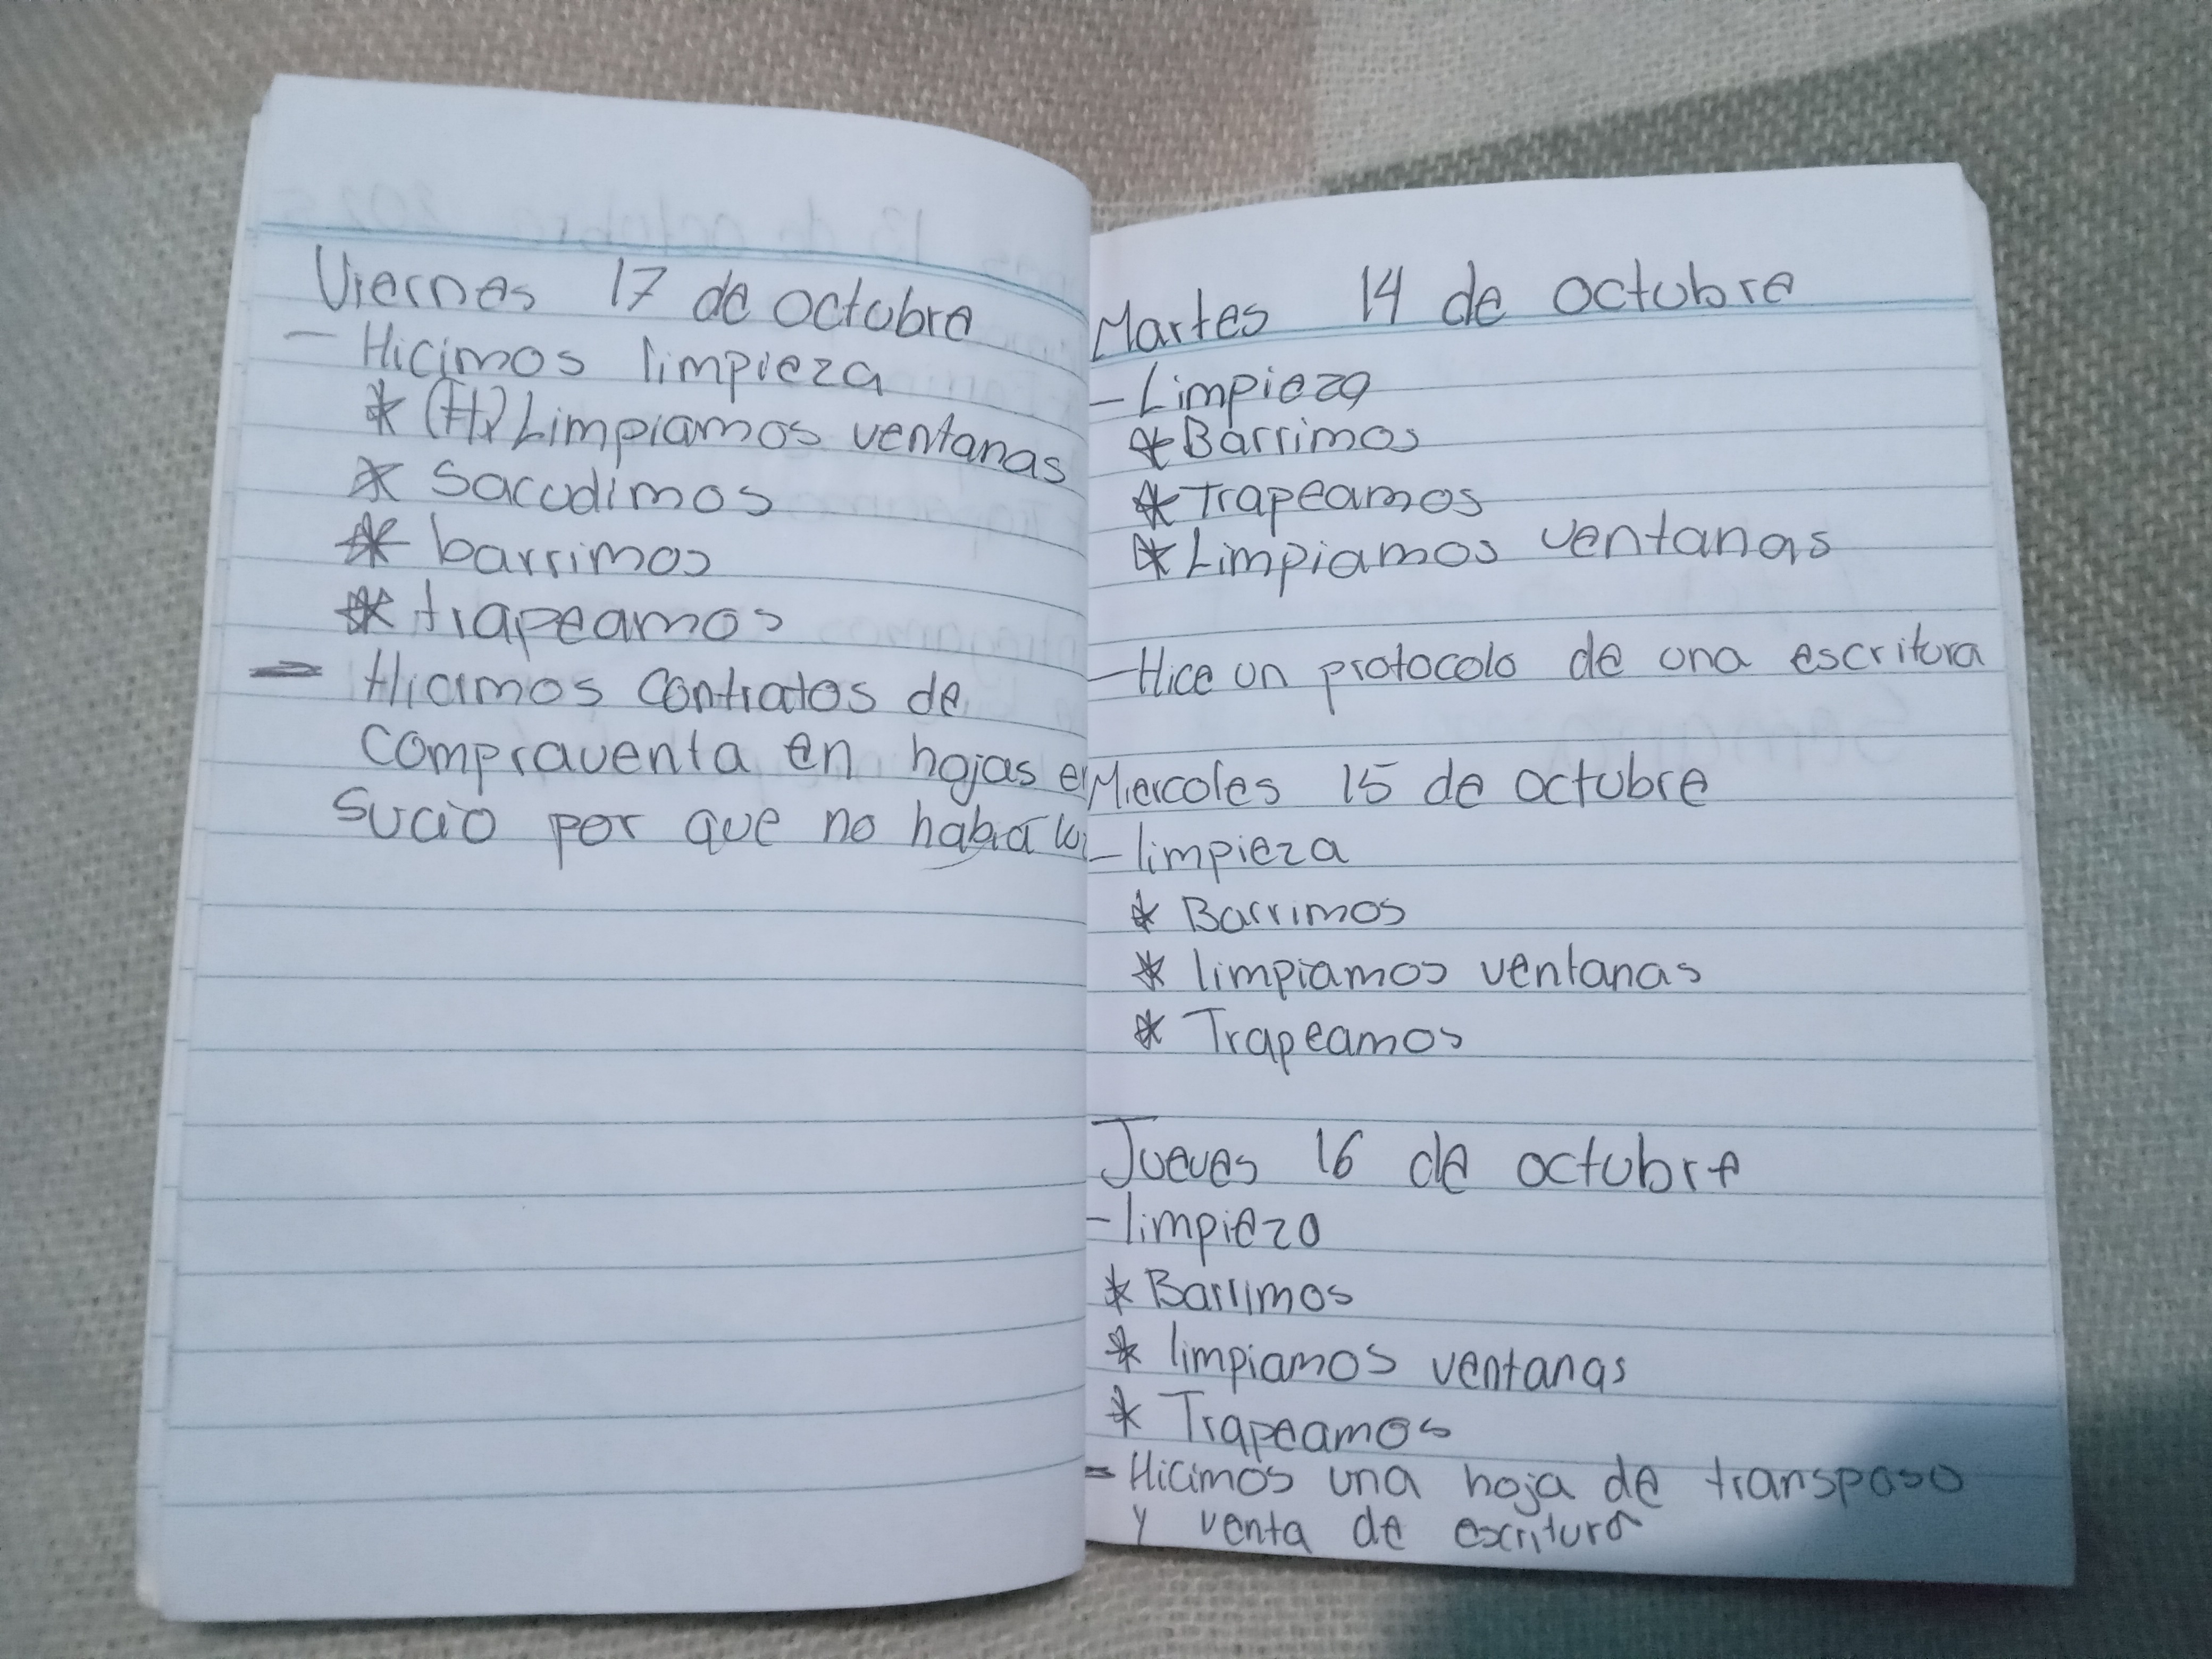 Viernes 17 de octubre
- Hicimos limpieza
* (H) Limpiamos ventanas
* Sacudimos
* barrimos
* trapeamos
- Hicimos contratos de
compraventa en hojas en
sucio por que no había
Martes 14 de octubre
- Limpieza
* Barrimos
* Trapeamos
* Limpiamos ventanas
- Hice un protocolo de una escritura
Miercoles 15 de octubre
- limpieza
* Barrimos
* limpiamos ventanas
* Trapeamos
Jueves 16 de octubre
- limpieza
* Barrimos
* limpiamos ventanas
* Trapeamos
- Hicimos una hoja de transpaso
y venta de escritura